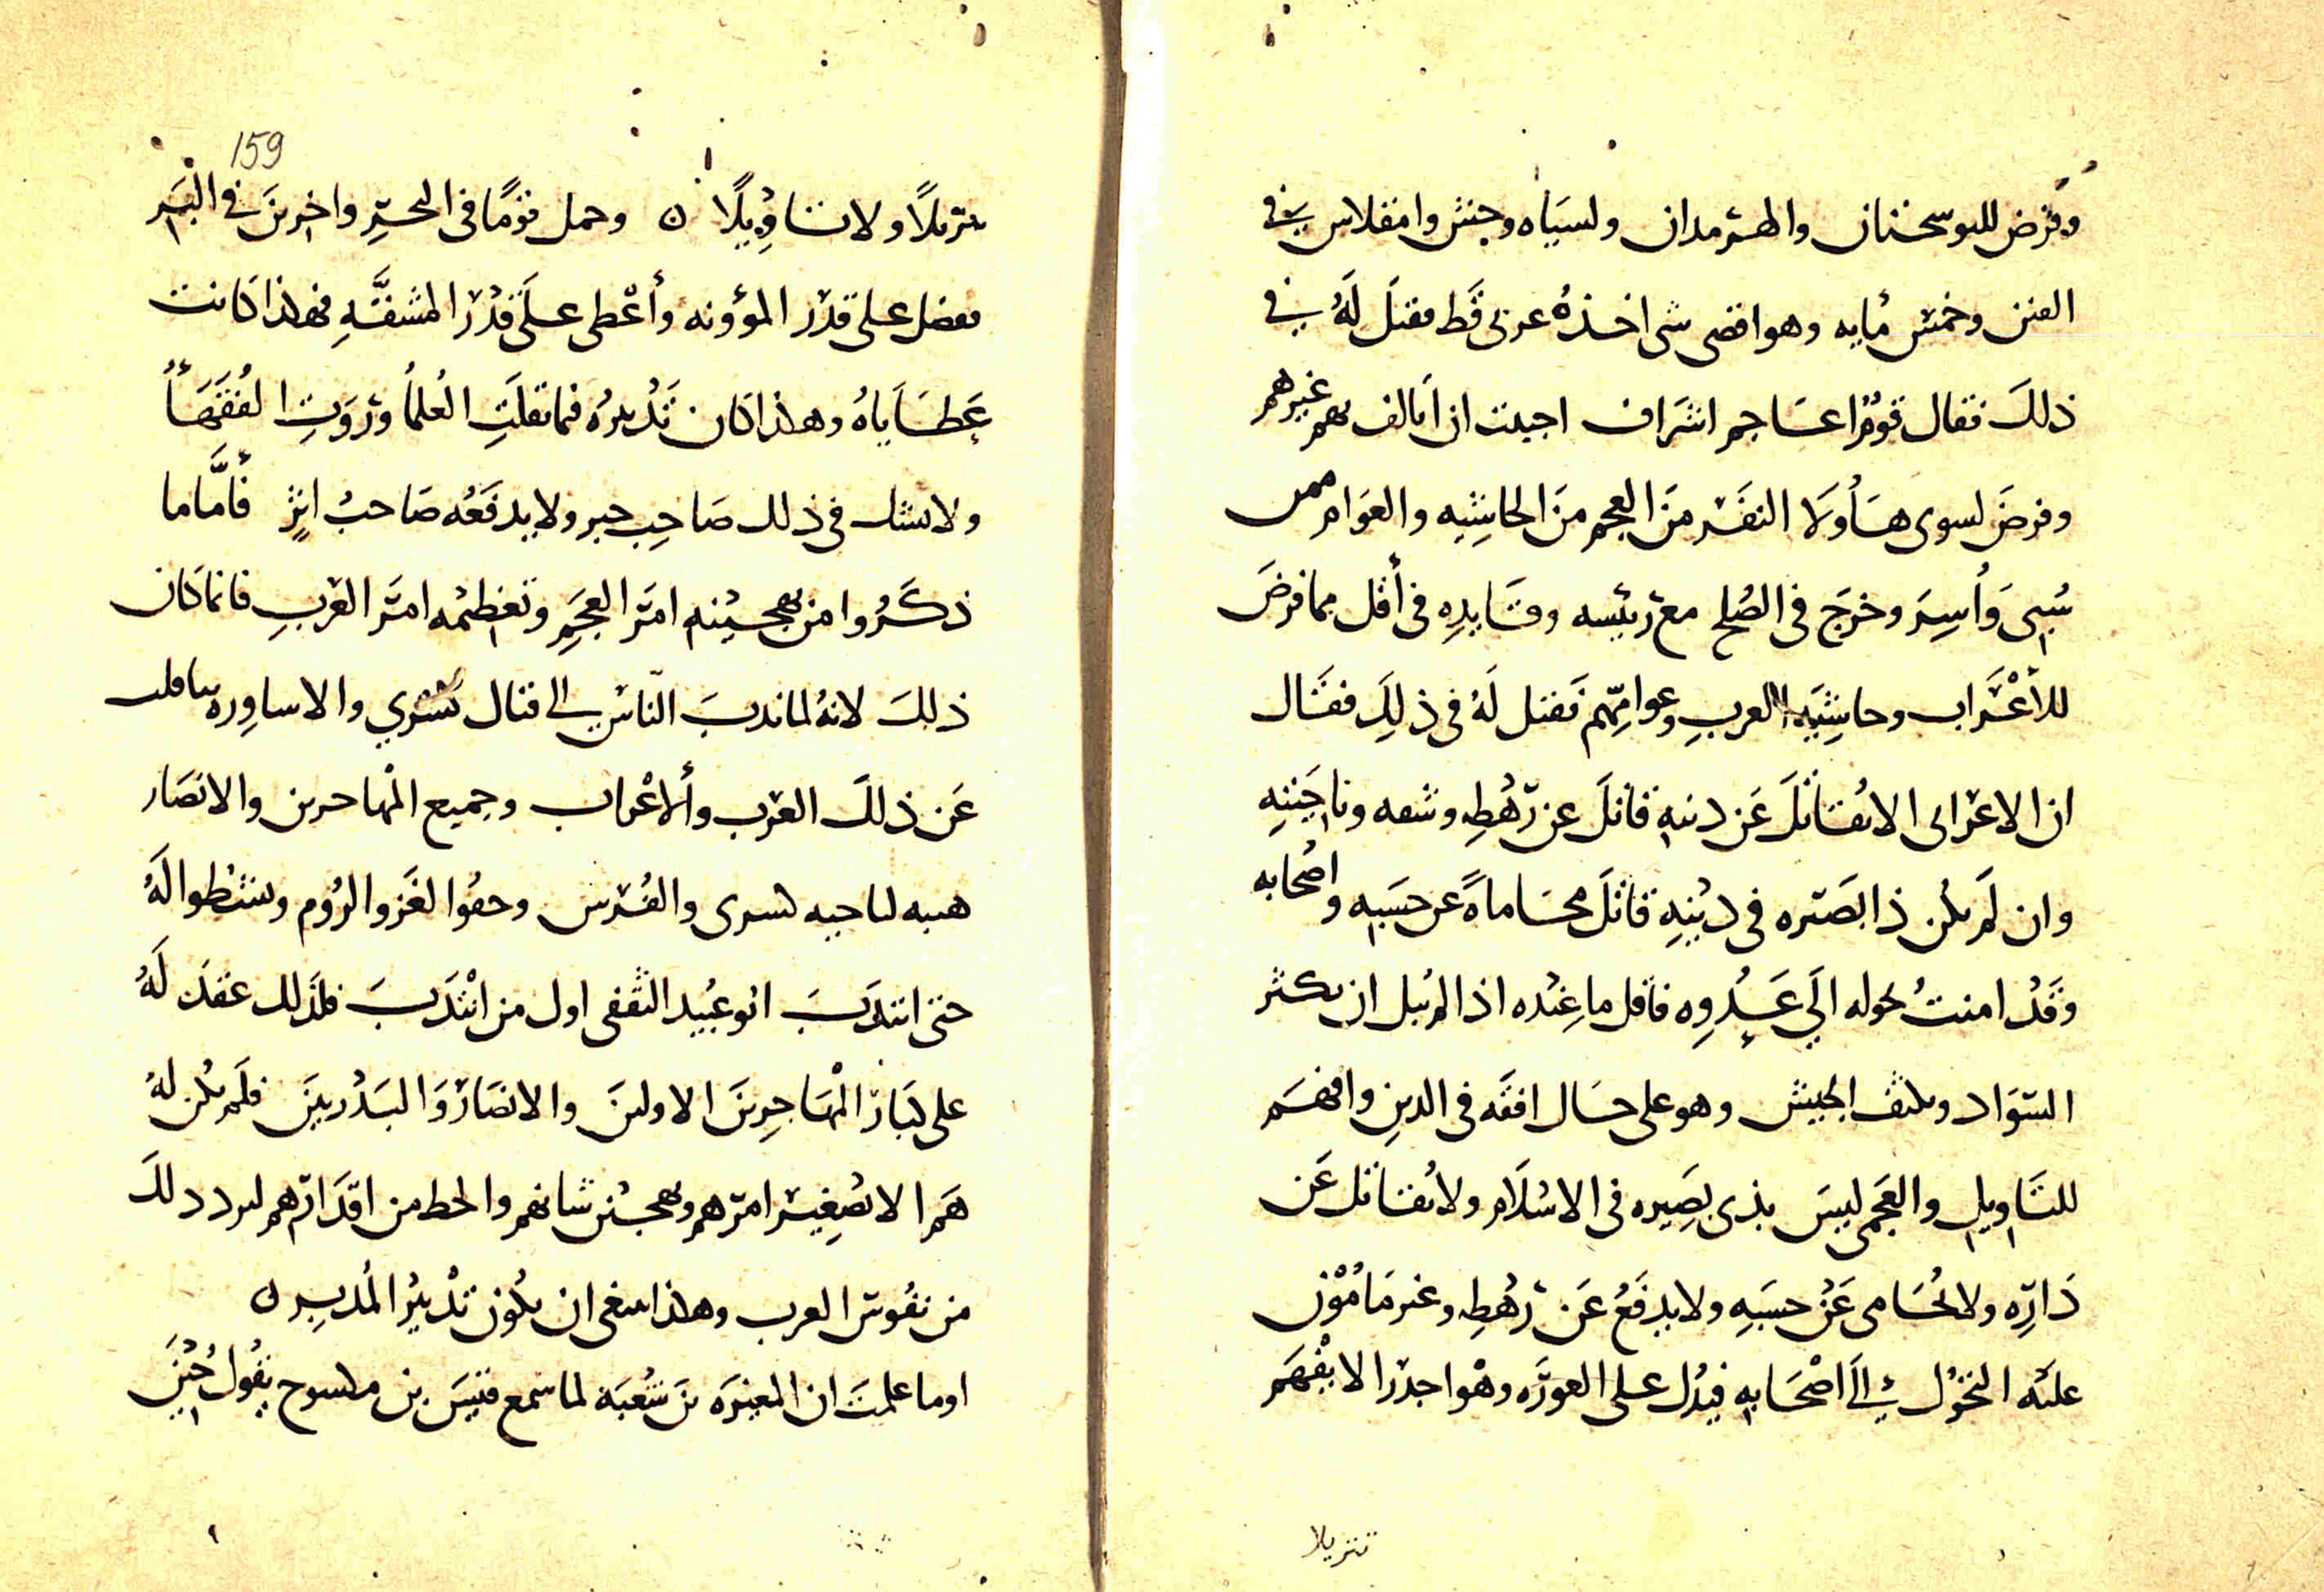 وفرض للنوسحنان والهرمدان ولسياه وحنش وامفلاس في
الفين وخمس مايه وهو اقصى شى اخذه عربى قط فقيل له في
ذلك فقال قوم اعاجم اشراف احببت ان اتالف بهم غيرهم
وفرض لسوى هاولا النفر من العجم من الحاشيه والعوام ممن
سبى وأسر وخرج فى الصلح مع رئيسه وقايده فى أقل مما فرض
للأعراب وحاشيه العرب وعوامهم فقيل له فى ذلك فقال
ان الاعرابى الا يقاتل عن دينه قاتل عن رهطه وشعه وناحيته
وان لم يكن ذا بصيره فى دينه قاتل محاماة عن حسبه واصحابه
وقد امنت تحوله الى عدوه فاقل ما عنده اذا لم يبل ان يكثر
السواد ويكثف الجيش وهو على حال افقه فى الدين وافهم
للتاويل والعجمى ليس بذى بصيره فى الاسلام ولا يقاتل عن
داره ولا يحامى عن حسبه ولا يدفع عن رهطه وغير مامون
عليه التحول الى اصحابه فيدل على العوره وهو اجدر الا يفهم
تنزيلا
159
تنزيلا ولا تاويلا ن وحمل قوما فى البحر واخرين في البر
ففضل على قدر المؤونه وأعطى على قدر المشقه فهذا كانت
عطاياه وهذا كان تدبيره فيما نقلت العلما وروت الفقهأ
ولا يشك فى ذلك صاحب خبر ولا يدفعه صاحب اثر فأما ما
ذكروا من تهجينه امر العجم وتعظيمه امر العرب فانما كان
ذلك لانه لما ندب الناس الى قتال كسرى والاساوره تثاقلت
عن ذلك العرب والأعراب وجميع المهاجرين والانصار
هيبه لناحيه كسرى والفرس وخفوا لغزو الروم ونشطوا له
حتى انتدب ابو عبيد الثقفى اول من انتدب فلذلك عقد له
على كبار المهاجرين الاولين والانصار والبدريين فلم يكن له
هم الا تصغير امرهم وتهجين شانهم والحط من اقدارهم ليرد ذلك
من نفوس العرب وهكذا ينبغى ان يكون تدبير المدبرين
اوما علمت ان المغيره بن شعبة لما سمع قيس بن مكسوح يقول حين